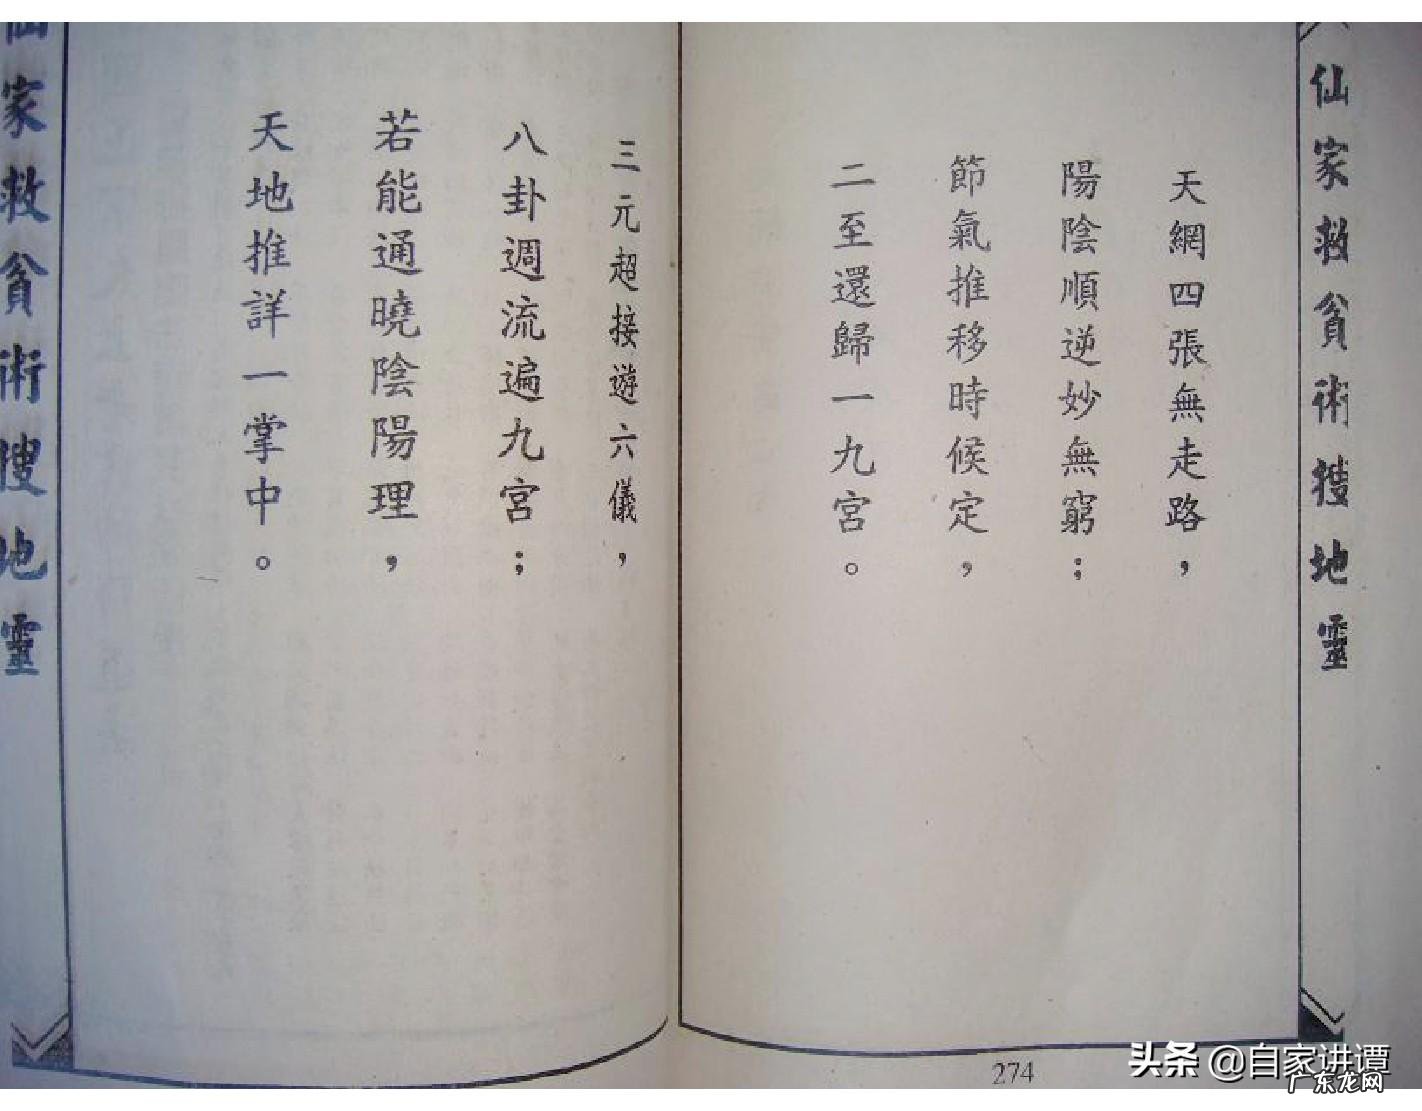 仙家救貧術搜地靈
天網四張無走路，
陽陰順逆妙無窮；
節氣推移時候定，
二至還歸一九宮。
274
三元超接遊六儀，
八卦週流遍九宮；
若能通曉陰陽理，
天地推詳一掌中。
仙家救貧術搜地靈
头条 @自家讲谭
广东龙网